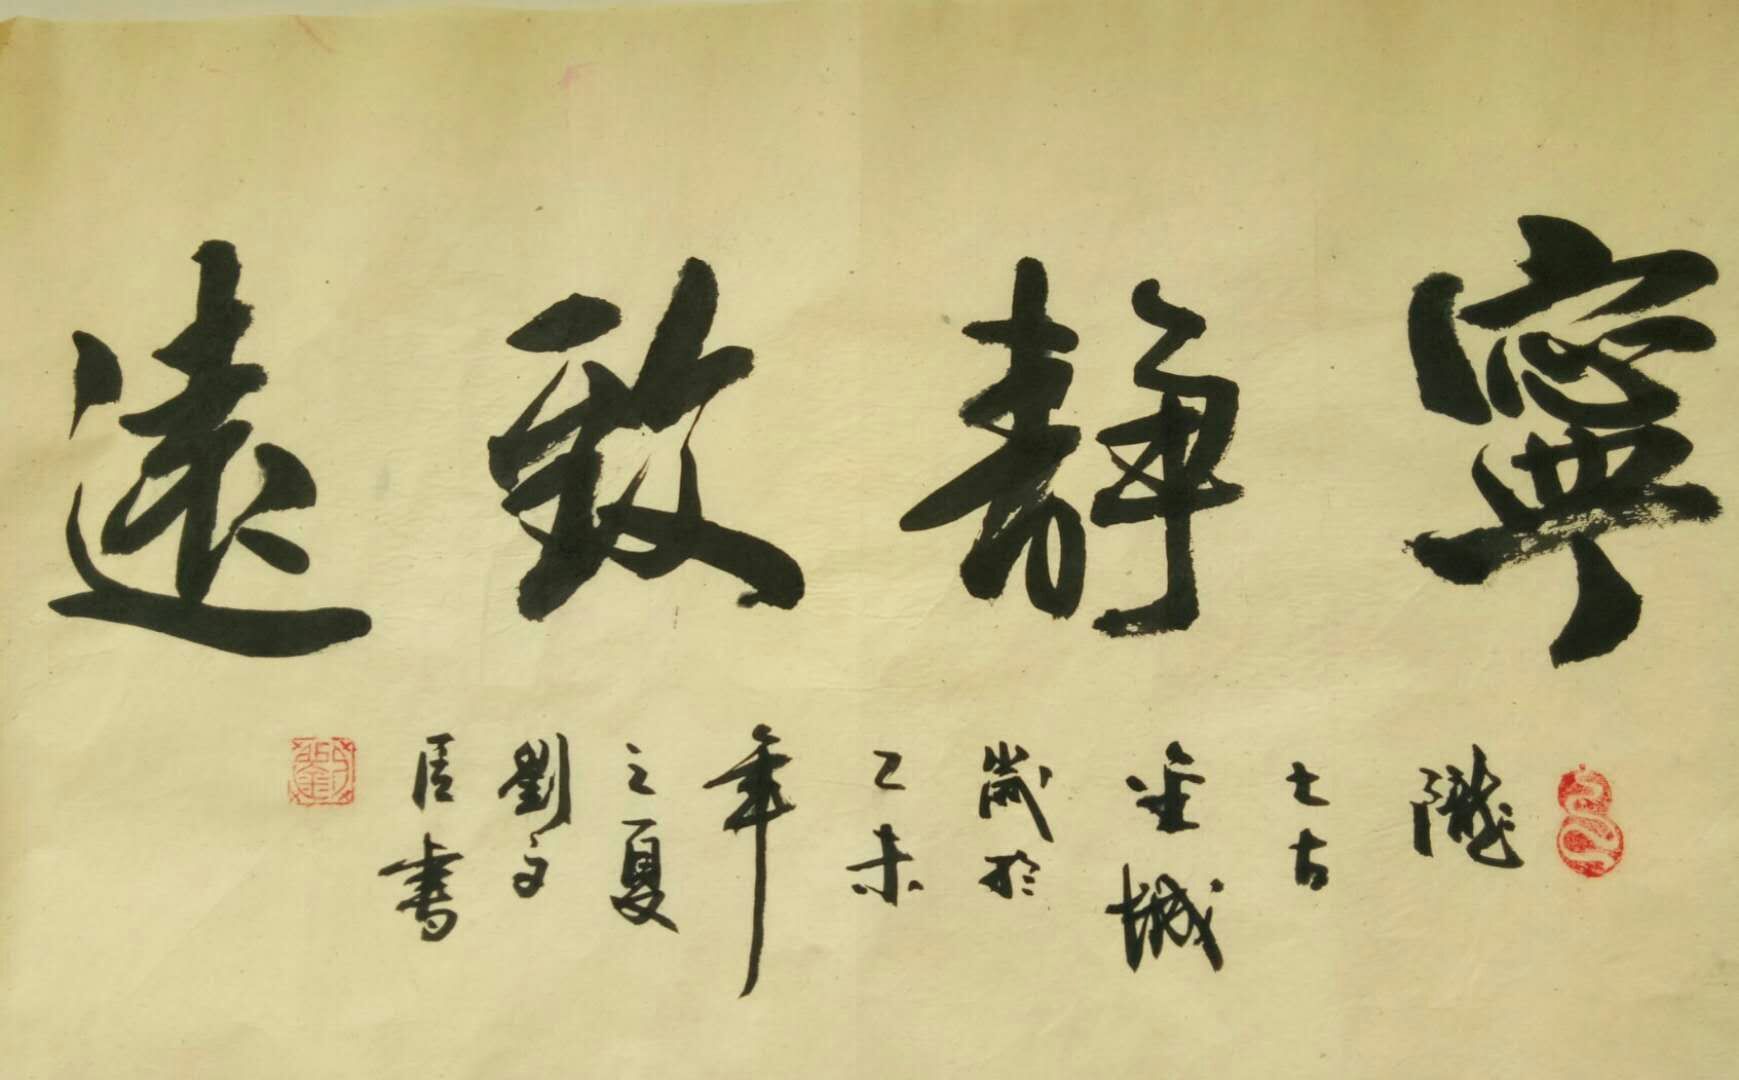 寧靜致遠
隴
上古
金城
歲於
乙未
年
之夏
劉文
書